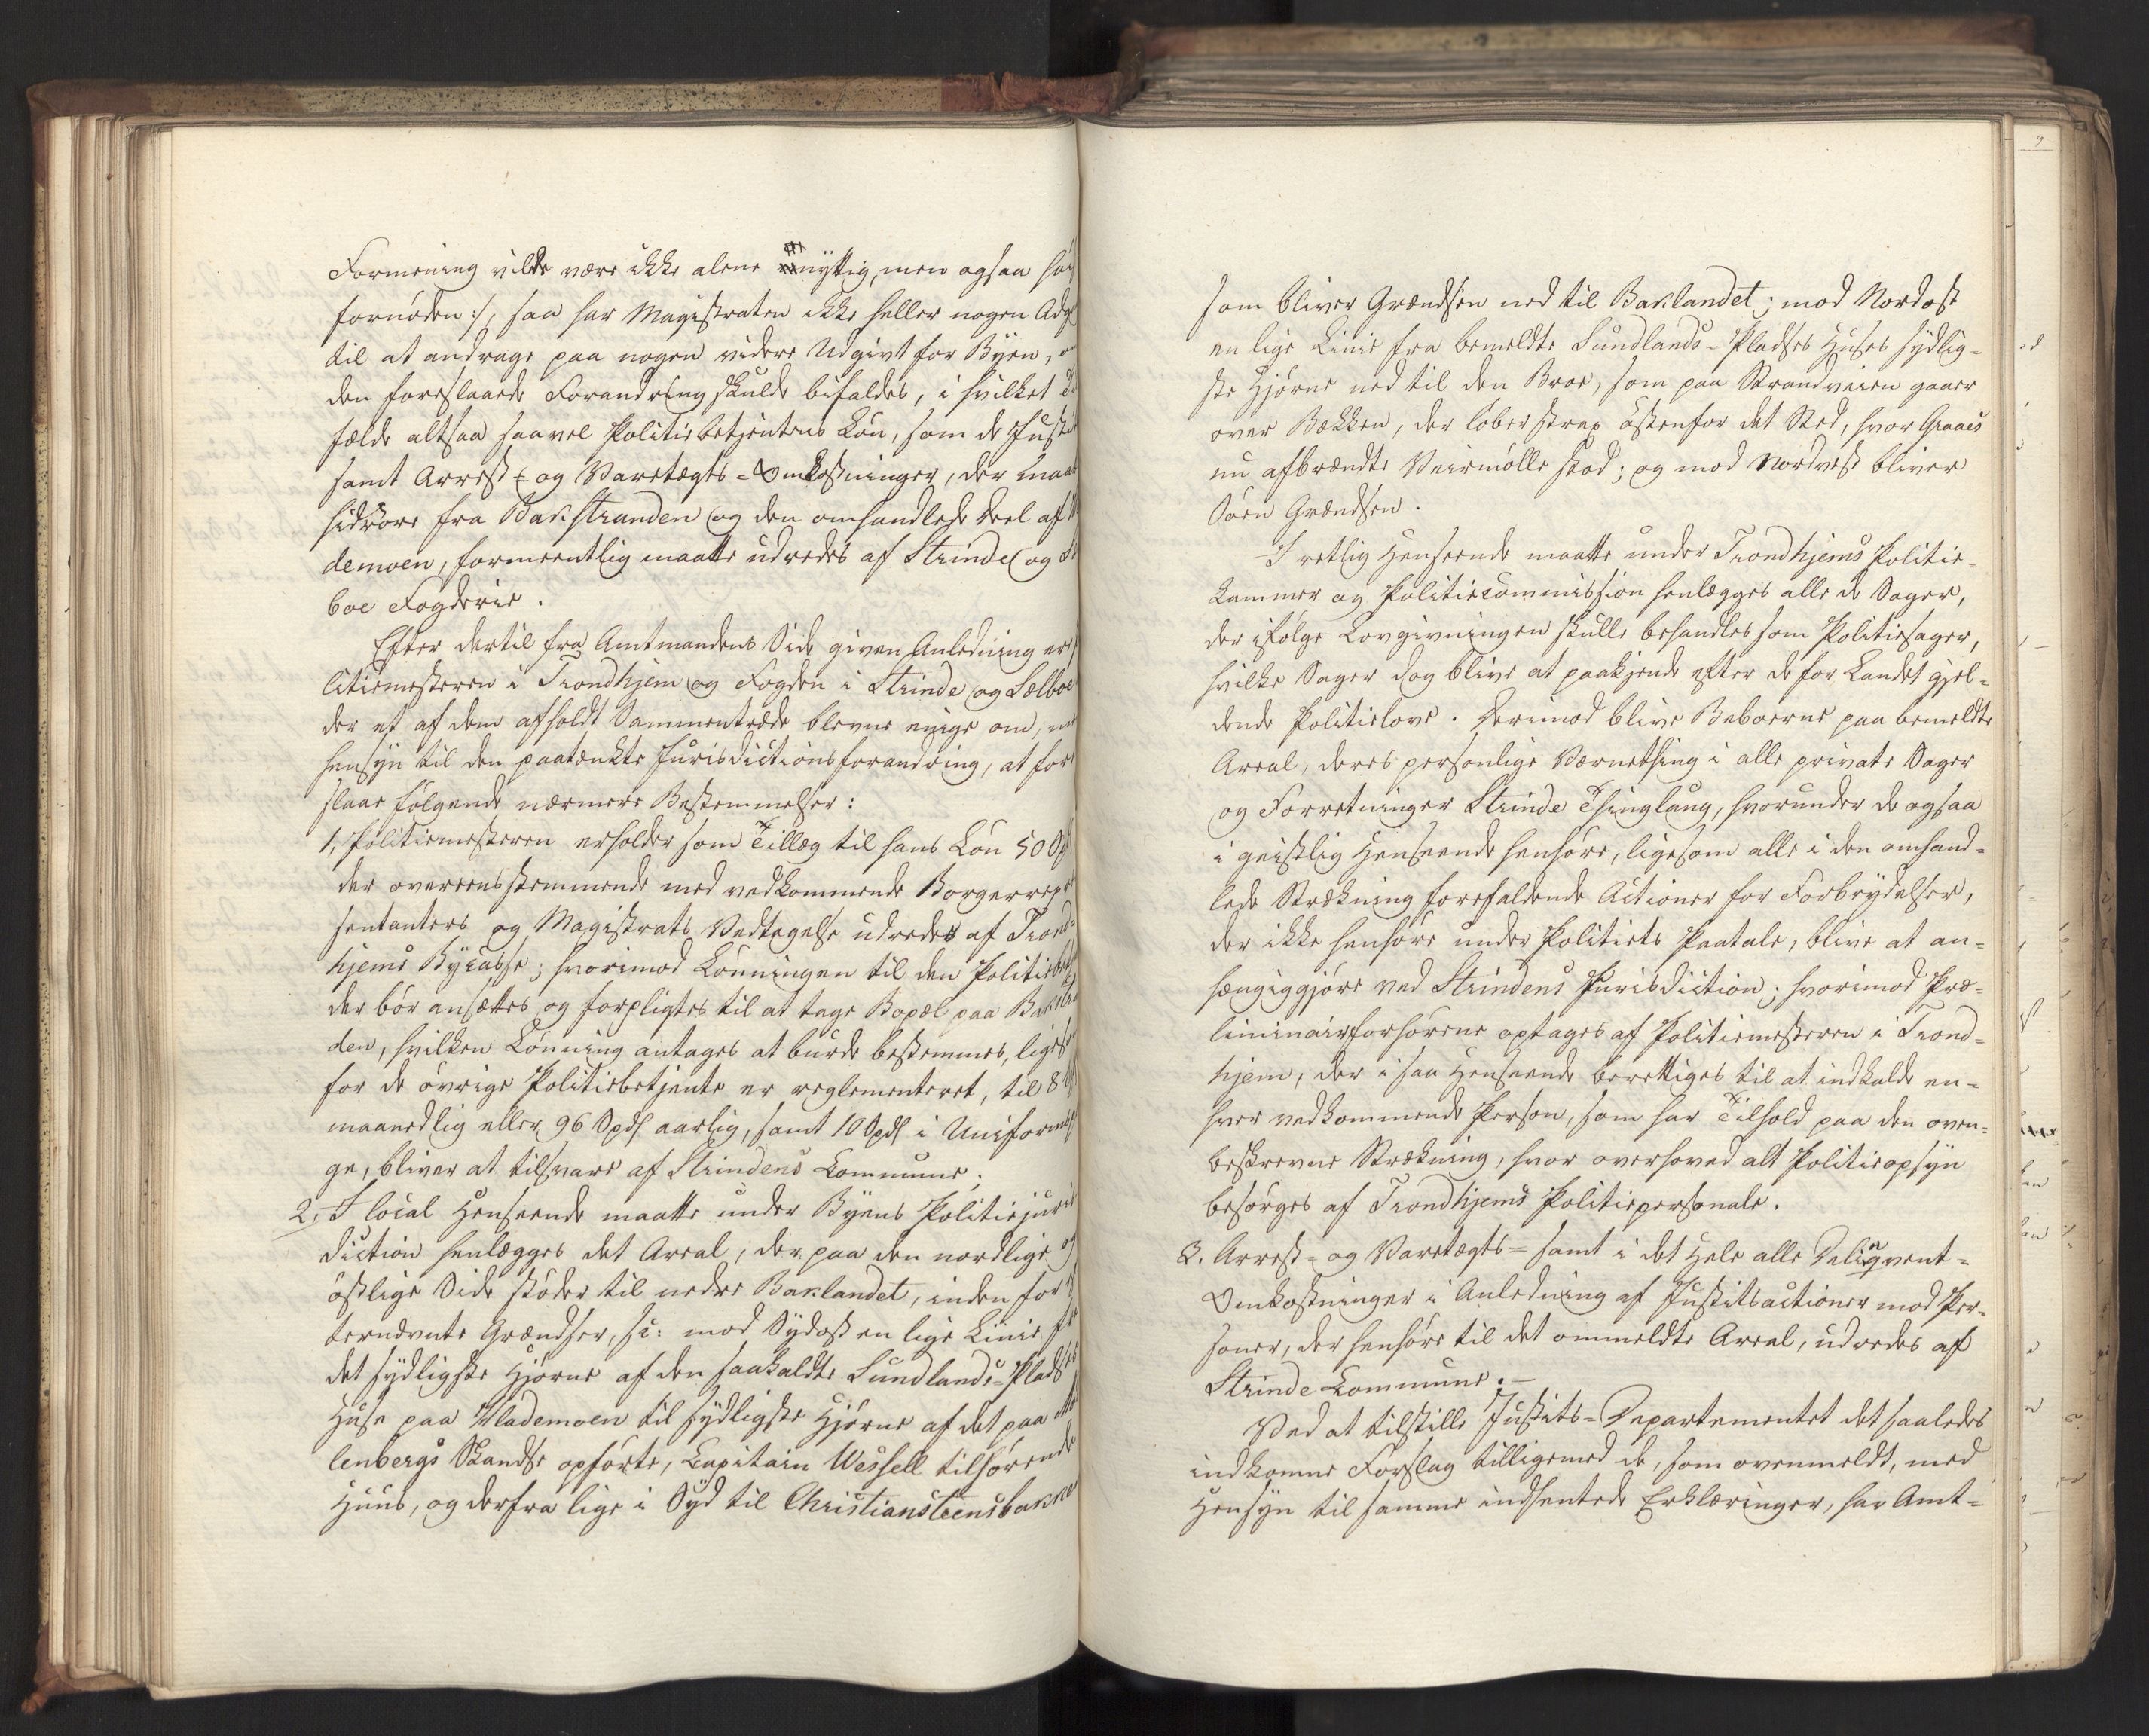 Formening vilde være ikke alene nyttig, men ogsaa høi
fornøden :/, saa har Magistraten ikke heller nogen Adg
til at andrage paa nogen videre Udgivt for Byen, om
den foreslaaede Forandring skulde bifaldes, i hvilket
fælde altsaa saavel Politiebetjentens Løn, som de Justits
samt Arrest- og Varetægts-Omkostninger, der maat
hidrøre fra Bakstranden og den omhandlede Deel af
demoen, formeentlig maatte udredes af Strinde og
boe Fogderie.
Efter dertil fra Amtmandens Side given Anledning er
litiemesteren i Trondhjem og Fogden i Strinde og Sælboe
der et af dem afholdt Sammentræde blevne enige om, me
hensyn til den paatænkte Jurisdictionsforandring, at fore
slaae følgende nærmere Bestemmelser:
1, Politiemesteren erholder som Tillæg til hans Løn 50
der overeensstemmende med vedkommende Borgerrepræ
sentanters og Magistrats Vedtagelse udredes af Trond-
hjems Bycasse; hvorimod Lønningen til den Politiebet
der bør ansættes og forpligtes til at tage Bopæl paa Bakstra
den, hvilken Lønning antages at burde bestemmes, ligeso
for de øvrige Politiebetjente er reglementeret, til 8
maanedlig eller 96 Spdl aarlig, samt 10 Spdl i Uniforms
ge, bliver at tilsvare af Strindens Commune;
2, I local Henseende maatte under Byens Politiejuris
diction henlægges det Areal, der paa den nordlige og
østlige Side støder til nedre Baklandet, inden for
ternævnte Grændser, sc: mod Sydost en lige Linie fra
det sydligste Hjørne af den saakaldte Lundlands-Plads
Huse paa Ulademoen til sydligste Hjørne af det paa Mø
lenbergs Skandse opførte, Capitain Wessell tilhørende
Huus, og derfra lige i Syd til Christiansteensbakke
som bliver Grændsen ned til Baklandet; mod Nordost
en lige Linie fra bemeldte Lundlands-Pladses Huses sydlig-
ste Hjørne ned til den Broe, som paa Strandveien gaaer
over Bækken, der løber strax østenfor det Sted, hvor Graaes
nu afbrændte Veirmølle stod; og mod Nordvest bliver
Søen Grændsen.
I retlig Henseende maatte under Trondhjems Politie-
kammer og Politiecommission henlægges alle de Sager,
der ifølge Lovgivningen skulle behandles som Politiesager,
hvilke Sager dog blive at paakjende efter de for Landet gjel-
dende Politielove. Derimod blive Beboerne paa bemeldte
Areal, deres personlige Værnething i alle private Sager
og Forretninger Strinde Thinglaug, hvorunder de ogsaa
i geistlig Henseende henhøre, ligesom alle i den omhand-
lede Strækning forefaldende Actioner for Forbrydelser,
der ikke henhøre under Politiets Paatale, blive at an-
hængiggjøre ved Strindens Jurisdiction; hvorimod Præ-
liminairforhørene optages af Politiemesteren i Trond-
hjem, der i saa Henseende berettiges til at indkalde en-
hver vedkommende Person, som har Tilhold paa den oven-
beskrevne Strækning, hvor overhoved alt Politieopsyn
besørges af Trondhjems Politiepersonale.
3. Arrest- og Varetægts- samt i det Hele alle Delinqvent-
Omkostninger i Anledning af Justitsactioner mod Per-
soner, der henhøre til det ommeldte Areal, udredes af
Strinde Commune.-
Ved at tilstille Justits-Departementet det saaledes
indkomne Forslag tilligemed de, som ovenmeldt, med
Hensyn til samme indhentede Erklæringer, har Amt-